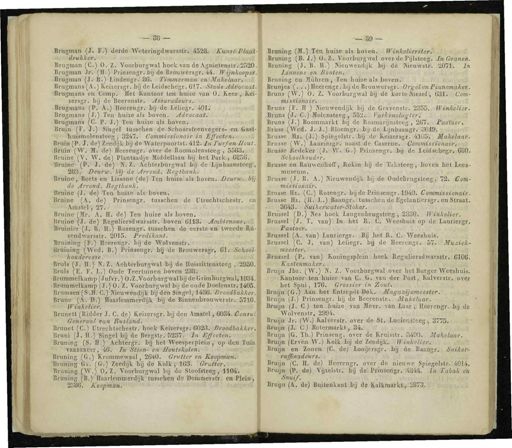 — 38 —
Brugman (J. F.) derde Weteringdwarsstr. 4528. Kunst-Plaat
drukker.
Brugman (C.) O. Z. Voorburgwal hoek van de Agnietenstr. 2720.
Brugman Jr. (H.) Prinsengr. bij de Brouwersgr. 44. Wijnkooper.
Brugman (J. H.) Eindengr. 36. Timmerman en Makelaar.
Brugmans (A.) Keizersgr. bij de Leidschegr. 617. Stads-Advocaat
Brugmans en Comp. Het Kantoor ten huize van O. Kees, Kei-
zersgr. bij de Beerenstr. Assuradeurs.
Brugmans (P. A.) Heerengr. bij de Leliegr. 401.
Brugmans (F.) Ten huize als boven. Advocaat.
Brugmans (C. P. J.) Ten huize als boven.
Bruin (F. J.) Singel tusschen de
huismolensteeg 3247. Commissionair in Effecten.
Bruin (P. J. de) Zeedijk bij de Waterpoortstr. 412. In Turf en Hout.
Bruin (W. H. de) Heerengr. over de Roomolensteeg, 5043.
Bruin (V. W. de) Plantaadje Middellaan bij het Park, 6256.
Bruine, (P. J. de) N. Z. Achterburgwal bij de Lijnbaansteeg,
203. Deurw. bij de Arrond. Regtbank.
Bruine, Boets en Lissone (de) Ten huize als boven. Deurw. bij
de Arrond. Regtbank.
Bruine (J. de) Ten huize als boven.
Bruine (A. de) Prinsengr. tusschen de Utrechtschestr. en
Amstel, 27.
Bruine (Mr. A. H. de) Ten huize als boven.
Bruine (J. de) Reguliersdwarsstr. boven 6113. Ambtenaar.
Bruinier (J. R. R.) Rozengr. tusschen de eerste en tweede Ro-
zendwarsstr. 2015. Predikant.
Bruining (F.) Heerengr. bij de Wolvenstr.
Bruining (Wed. B.) Prinsengr. bij de Beerenstr. 61. School-
houderesse.
Bruls (J. B.) N. Z. Achterburgwal bij de Huiszittensteeg, 2950.
Bruls (E. F. L.) Oude Teertuinen boven 238.
Brummelkamp (Jufvr.) O. Z. Voorburgwal bij de Grimburgwal, 1034.
Brummelkamp (J.) O. Z. Voorburgwal bij de oude Doelenstr. 1405.
Brummer (S. H. C.) Nieuwendijk bij den Singel, 1426. Broodbakker.
Brune (A. B.) Haarlemmerdijk bij de Binnenbrouwerstr. 5716.
Winkelier.
Brunett (Ridder J. C. de) Keizersgr. bij den Amstel, 6034. Consul
Generaal van Rusland.
Brunet (C.) Utrechtschestr. hoek Keizersgr. 6032. Broodbakker.
Bruni (J. B.) Singel bij de Bergstr. 5237. In Effecten.
Bruning (S. H.) Achtergr. bij het Weesperplein, op den Tuin
vanaster, 46. In Steen- en Houtskolen.
Bruning (G.) Krommewaal, 2640. Grutter en Koopman.
Bruning (G. G.) Zeedijk bij de Kolk, 163. Grutter.
Bruning (W.) O. Z. Voorburgwal bij de Stoofsteeg, 1104.
Bruning (B.) Haarlemmerdijk tusschen de Dommerstr. en Plein,
2286. Koopman.
— 39 —
Bruning (M.) Ten huize als boven. Winkelierster.
Bruning (B. J.) O. Z. Voorburgwal over de Pijlsteeg. In Granen.
Bruning (J. B. R.) Nieuwendijk bij de Nieuwstr. 2071. In
Lampen en Routen.
Bruning en Muhren, Ten huize als boven.
Brunjes (...) Heerengr. bij de Brouwersgr. Orgel en Pianomaker.
Brus (W.) O. Z. Voorburgwal bij de korte Niezel, 631. Com-
missionair.
Bruns (F. B.) Nieuwendijk bij de Gravenstr. 2355. Winkelier.
Bruns (J. C.) Molensteeg, 552. Varkensslagter.
Bruse (J.) Boommarkt bij de Roomolensteeg, 267. Pastoor.
Bruse (Wed. J. J.) Bloemgr. bij de Lijnbaansgr. 3049.
Bruse Ha. (J.) Spiegelstr. bij de Kerkstr. 4105. Makelaar.
Bruse (W.) Laauriergr. naast de Kazerne. Commissionair.
Bruse Kerkelijke (V. W. G.) Prinsengr. bij de Leidschegr. 660.
Schoolhouder.
Brusse en Bauwehoff, Rokin bij de Taksteeg, boven het Lees-
museum.
Brusse (J. B. A.) Nieuwendijk bij de Oudebrugsteeg, 72. Com-
missionair.
Brusse Hz. (C.) Rozengr. bij de Prinsengr. 1940. Commissionair.
Brusse Hz. (R. J.) Baangr. tusschen de Egelantiersgr. en Straat.
3643. Suikerwater-Stoker.
Brussel (D.) Nes hoek Langebrugsteeg, 2350. Winkelier.
Brussel (F. T. van) In het R. C. Weeshuis op de Lauriergr.
Pastoor.
Brussel (A. van) Lauriergr. Bij het R. C. Weeshuis.
Brussel (C. J. van) Leiegr. bij de Heerengr. 57. Muziek-
meester.
Brussel (P. van) Koningsplein hoek Reguliersdwarsstr. 6106.
Kastemaker.
Bruijn Jbz. (W.) N. Z. Voorburgwal over het Burger Weeshuis.
Kantoor ten huize van G. Ss. van der Pant, Kalverstr. over
het Spui, 176. Grossier in Zout.
Bruijn (C.) Aan het Entrepôt-Dok. Magazijnmeester.
Bruijn (J.) Prinsengr. bij de Beerenstr. Makelaar.
Bruijn (J. C.) ten huize van Mevr. van Loo, Heerengr. bij de
Wolvenstr. 2994.
Bruijn Jr. (W.) Kalverstr. over de St. Luciensteeg, 3775.
Bruijn (J. C.) Botermarkt, 34.
Bruijn (G. Th.) Prinsengr. over de Kruisstr. 5400. Makelaar.
Bruijn (Erven W.) Kolk bij de Zeedijk. Winkelier.
Bruijn en Zonen (C. de) Looijersgr. bij de Baangr. Suiker-
raffinadeurs.
Bruijn (C. H. de) Heerengr. over de nieuwe Spiegelstr. 4014.
Bruijn (P. de) Vijzelstr. bij de Prinsengr. 4844. In Tabak en
Snuif.
Bruijn (A. de) Buitenkant bij de Kalkmarkt, 2873.